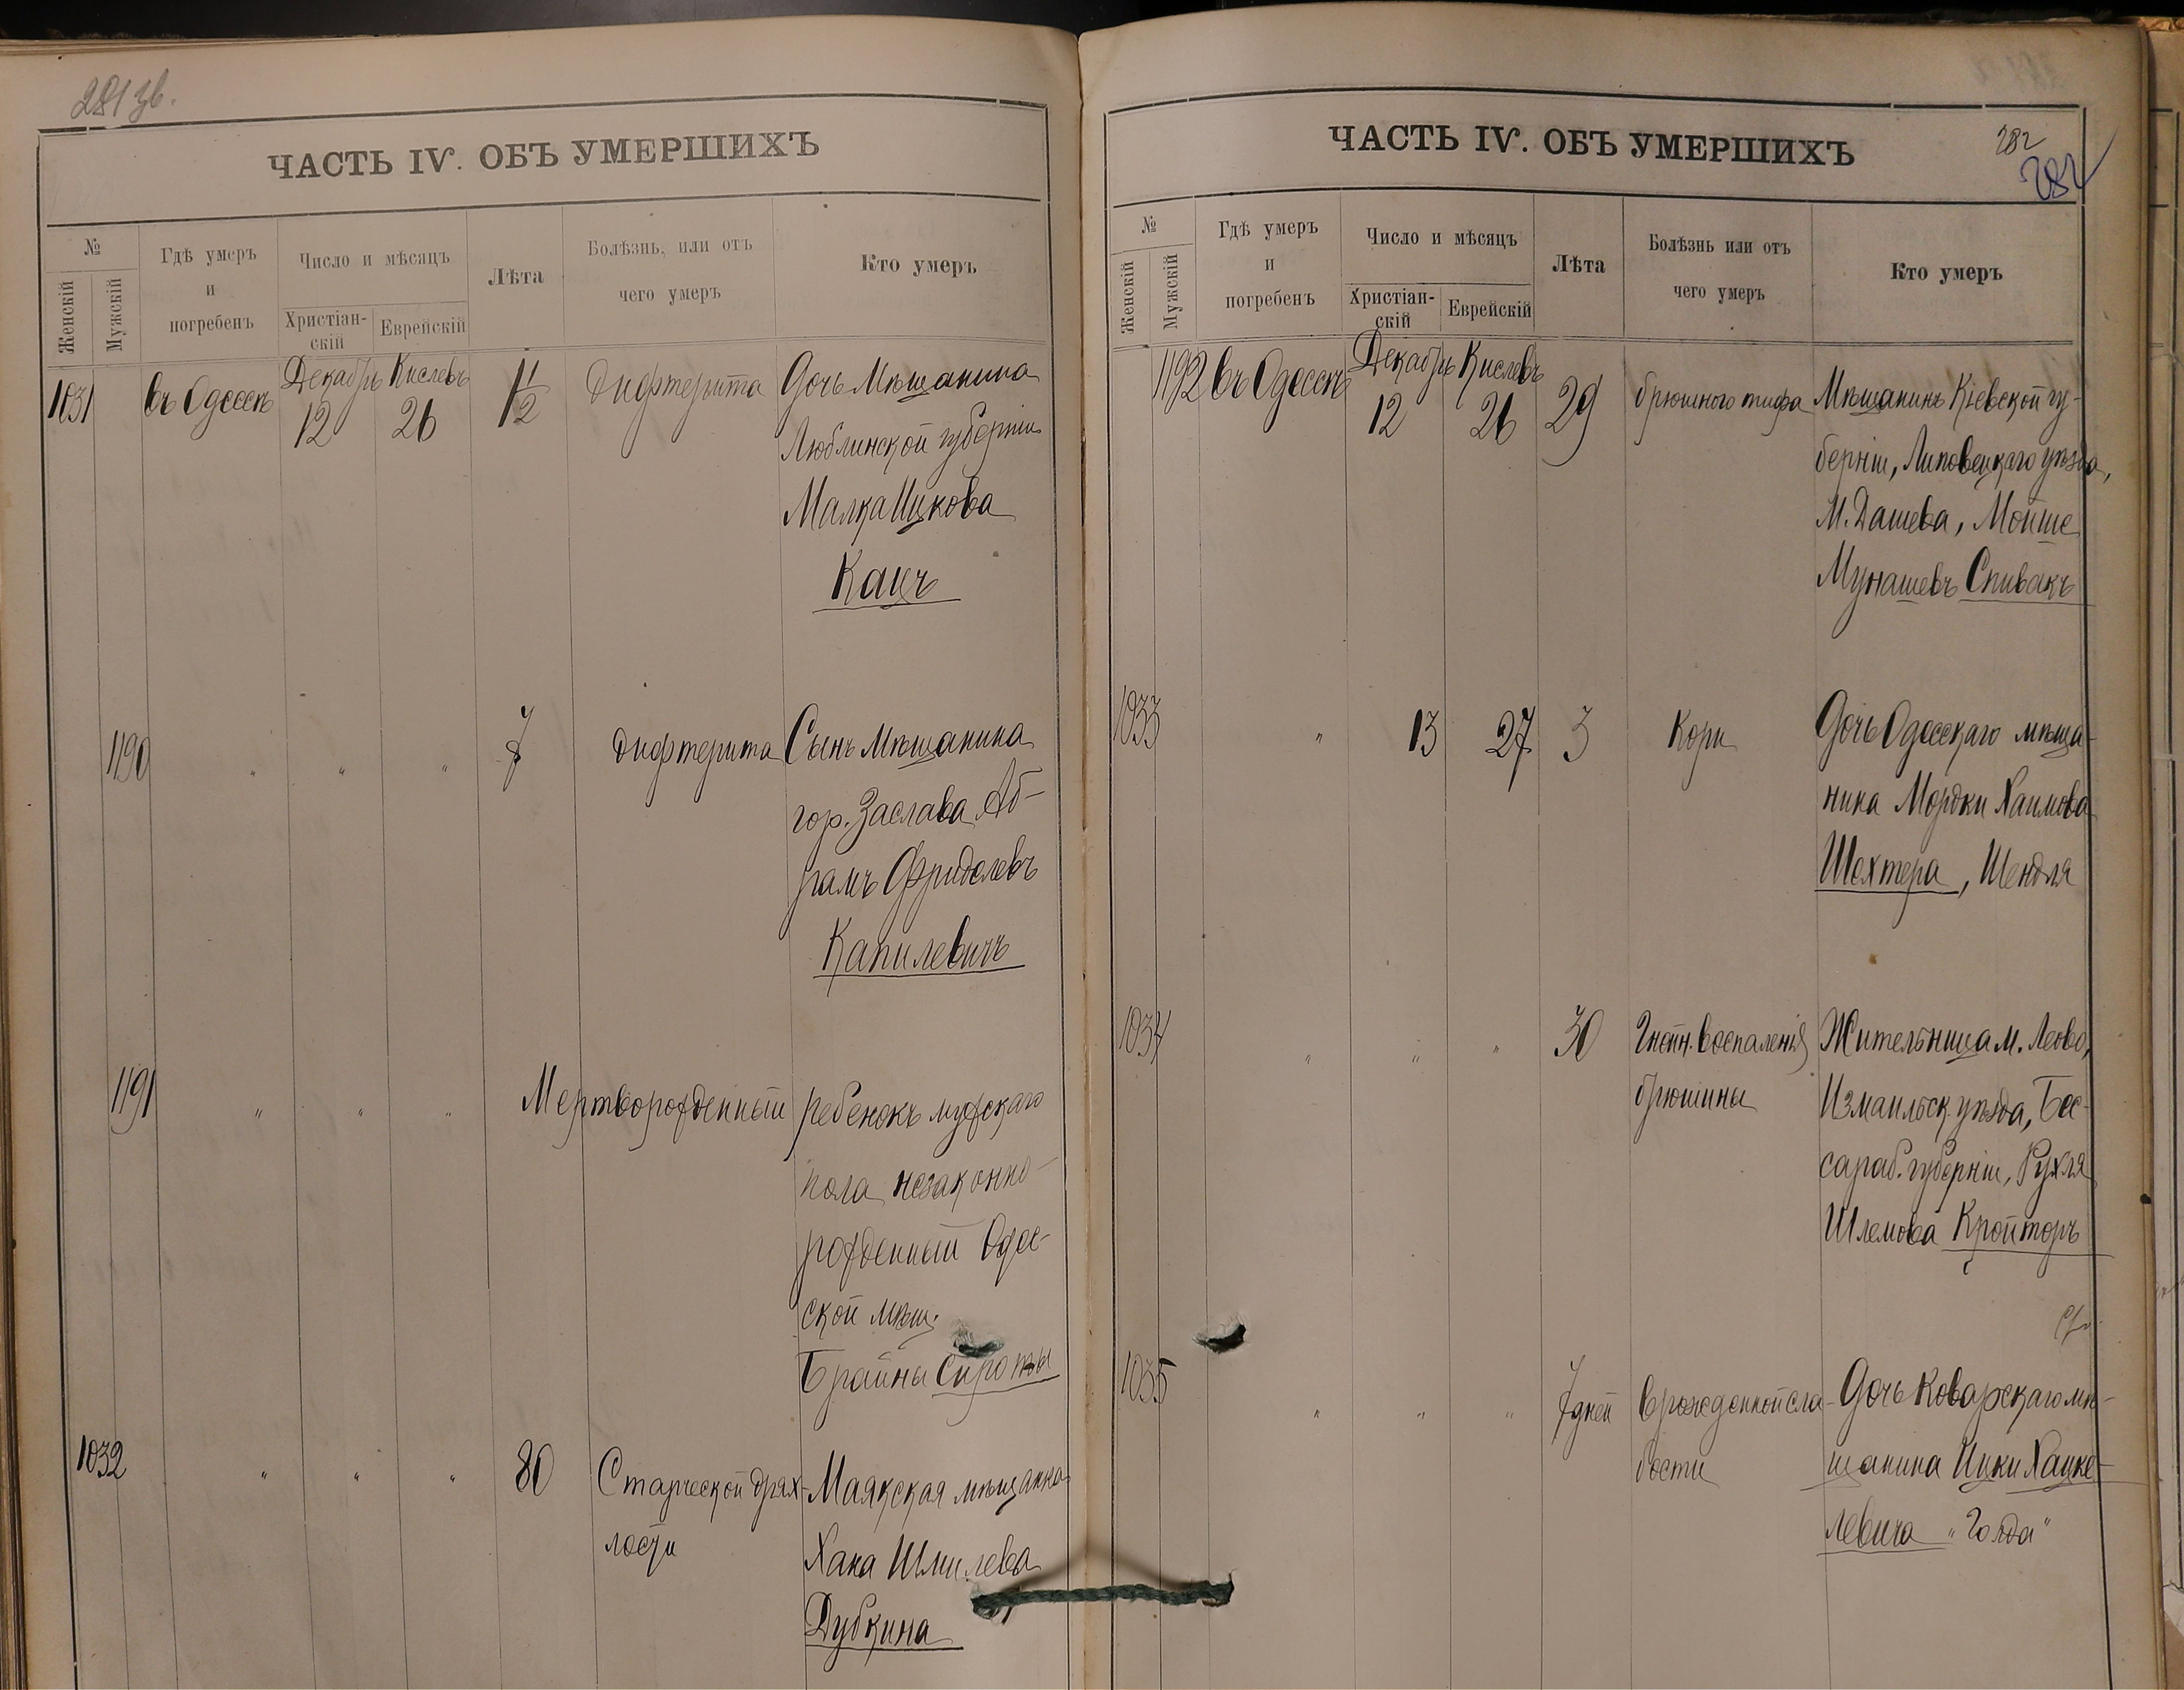 281 зв.
ЧАСТЬ IV. ОБЪ УМЕРШИХЪ
№
Женскій
Мужскій
Гдѣ умеръ
и
погребенъ
Число и мѣсяцъ
Христіан-
скій
Еврейскій
Лѣта
Болѣзнь, или отъ
чего умеръ
Кто умеръ
1031 въ Одессѣ Декабрь 12 Кислевъ 26 1 1/2 Дифтерита Дочь Мѣщанина
Люблинской губерніи
Малка Ицкова
Кацъ
1190 " " " 7 Дифтерита Сынъ Мѣщанина
гор. Заслава Аб-
рамъ Фриделевъ
Капилевичъ
1191 " " " Мертворожденный ребенокъ мужскаго
пола незаконно-
рожденный Одес-
ской мѣщ.
Брайны Сироты
1032 " " " 80 Старческой дрях- Маякская мѣщанка
лости Хана Шмилева
Дубкина
ЧАСТЬ IV. ОБЪ УМЕРШИХЪ
282
282
№
Женскій
Мужскій
Гдѣ умеръ
и
погребенъ
Число и мѣсяцъ
Христіан-
скій
Еврейскій
Лѣта
Болѣзнь или отъ
чего умеръ
Кто умеръ
1192 въ Одессѣ Декабрь 12 Кислевъ 26 29 брюшного тифа Мѣщанинъ Кіевской гу-
берніи, Липовецкаго уѣзда,
М. Дашева, Мойше
Мунашевъ Спивакъ
1033 " 13 27 3 Кори Дочь Одесскаго мѣща-
нина Мордки Хаимова
Шехтера, Шендля
1034 " " " 30 Гнойн. воспаленія Жительница м. Леово,
брюшины Измаильск. уѣзда, Бес-
сараб. губерніи, Рухля
Шлемова Кройторъ
1035 " " " 7 дней врожденной сла- Дочь Коварскаго мѣ-
бости щанина Ицки Хацке-
левича "Голда"